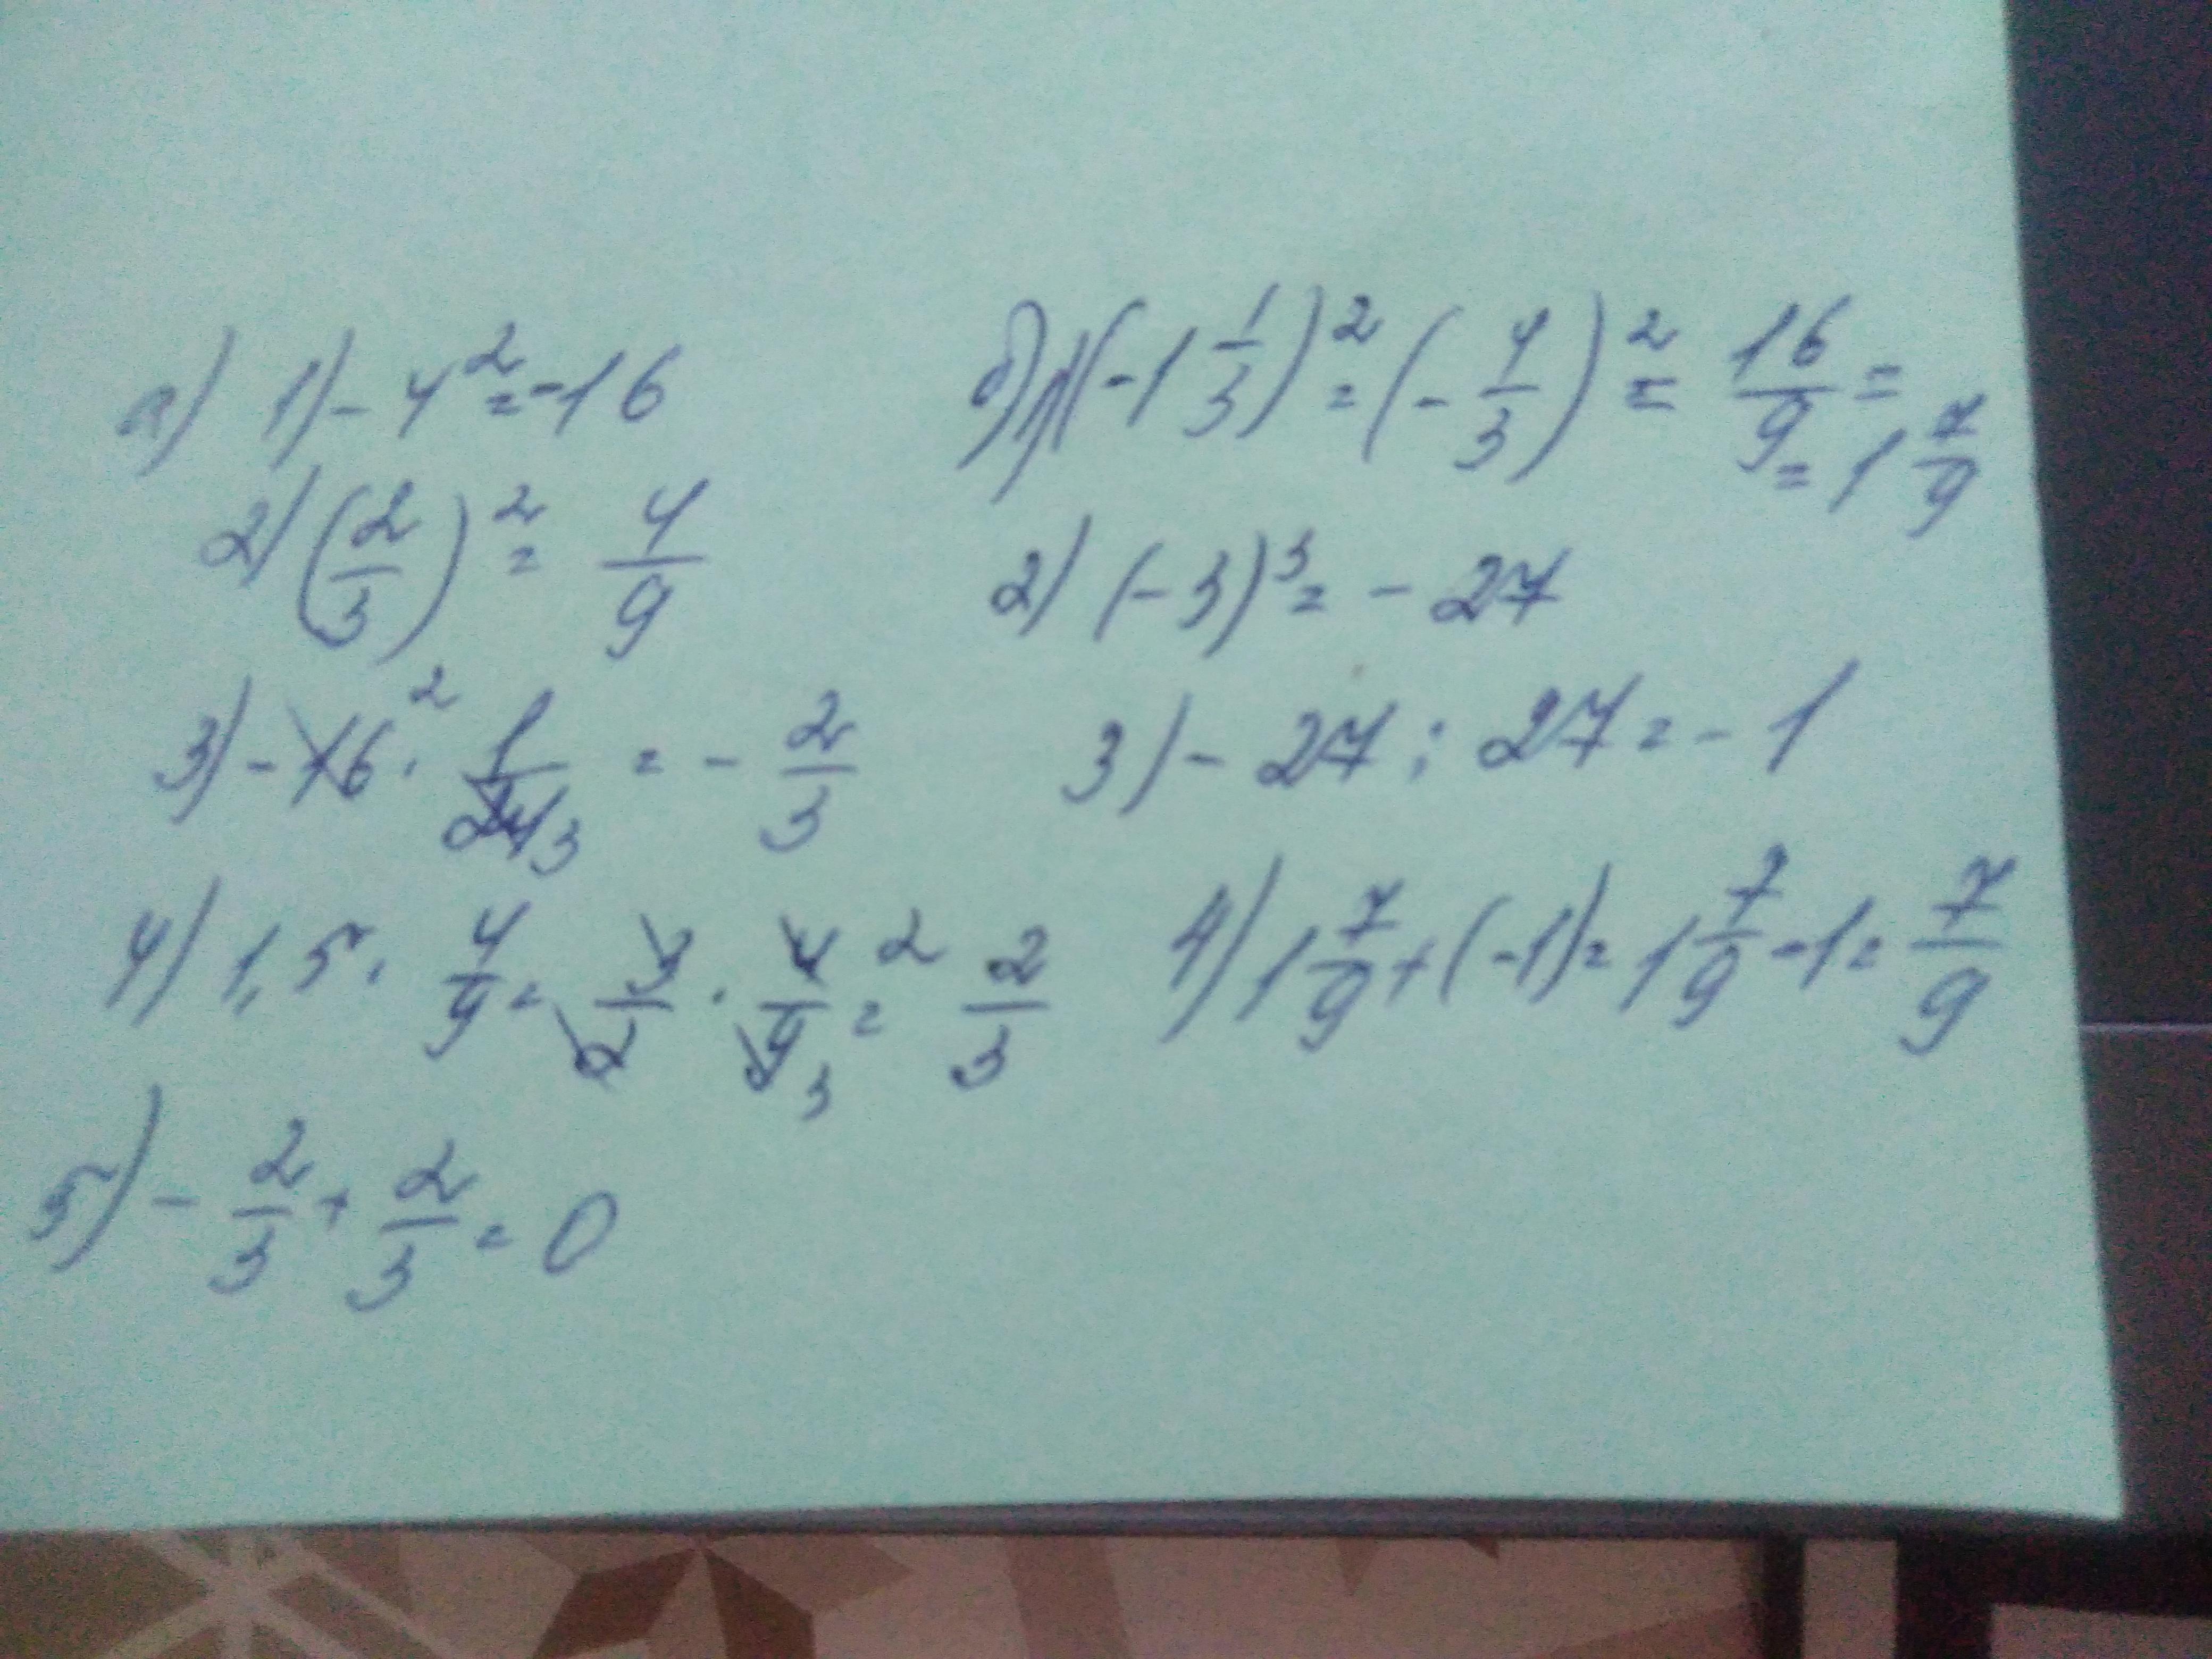 а) 1) - 4² = -16
2) (2/3)² = 4/9
3) - 16² · 1/24 3 = - 2/3
4) 1,5 · 4/9 = 3/2 · 4/9 3 = 2 2/3
5) - 2/3 + 2/3 = 0
б) 1) (-1 1/3)² = (- 4/3)² = 16/9 =
= 1 7/9
2) (-3)³ = - 27
3) - 27 : 27 = - 1
4) 1 7/9 + (-1) = 1 7/9 - 1 = 7/9